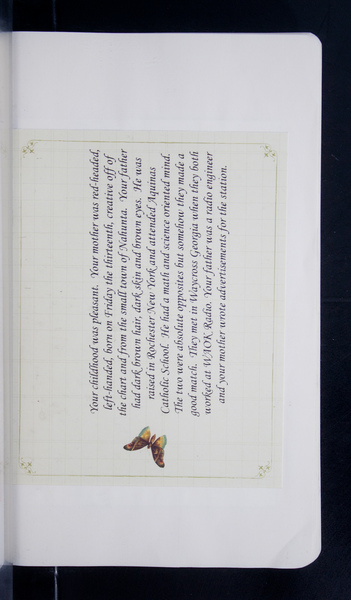 Your childhood was pleasant. Your mother was red-headed,
left-handed, born on Friday the thirteenth, creative off of
the chart and from the small town of Nahunta. Your father
had dark brown hair, dark skin and brown eyes. He was
raised in Rochester New York and attended Aquinas
Catholic School. He had a math and science oriented mind.
The two were absolute opposites but somehow they made a
good match. They met in Waycross Georgia when they both
worked at WAOK Radio. Your father was a radio engineer
and your mother wrote advertisements for the station.